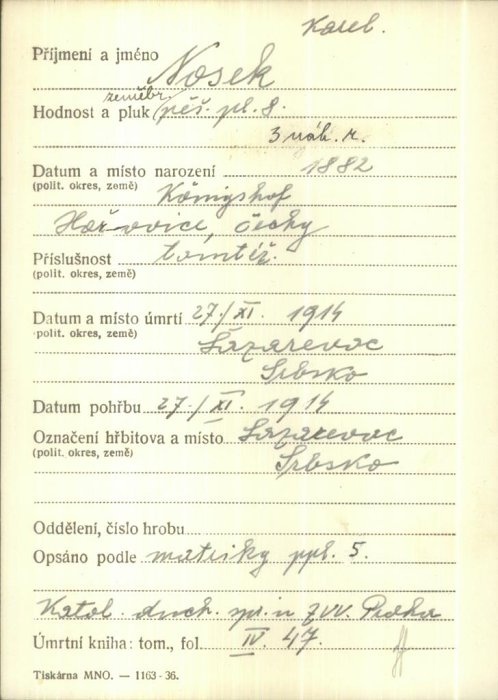 Karel.
Příjmení a jméno Nosek
zeměbr.
Hodnost a pluk pěš. pl. 8.
3 náh. r.
Datum a místo narození 1882
(polit. okres, země) Königshof
Hořovice, Čechy
Příslušnost tomtéž.
(polit. okres, země)
Datum a místo úmrtí 27./XI. 1914
(polit. okres, země) Lazarevac
Srbsko
Datum pohřbu 27./XI. 1914
Označení hřbitova a místo Lazarevac
(polit. okres, země) Srbsko
Oddělení, číslo hrobu
Opsáno podle matriky ppl. 5.
Katol. duch. spr. u ZVV. Praha
Úmrtní kniha: tom., fol. IV. 47.
Tiskárna MNO. — 1163-36.